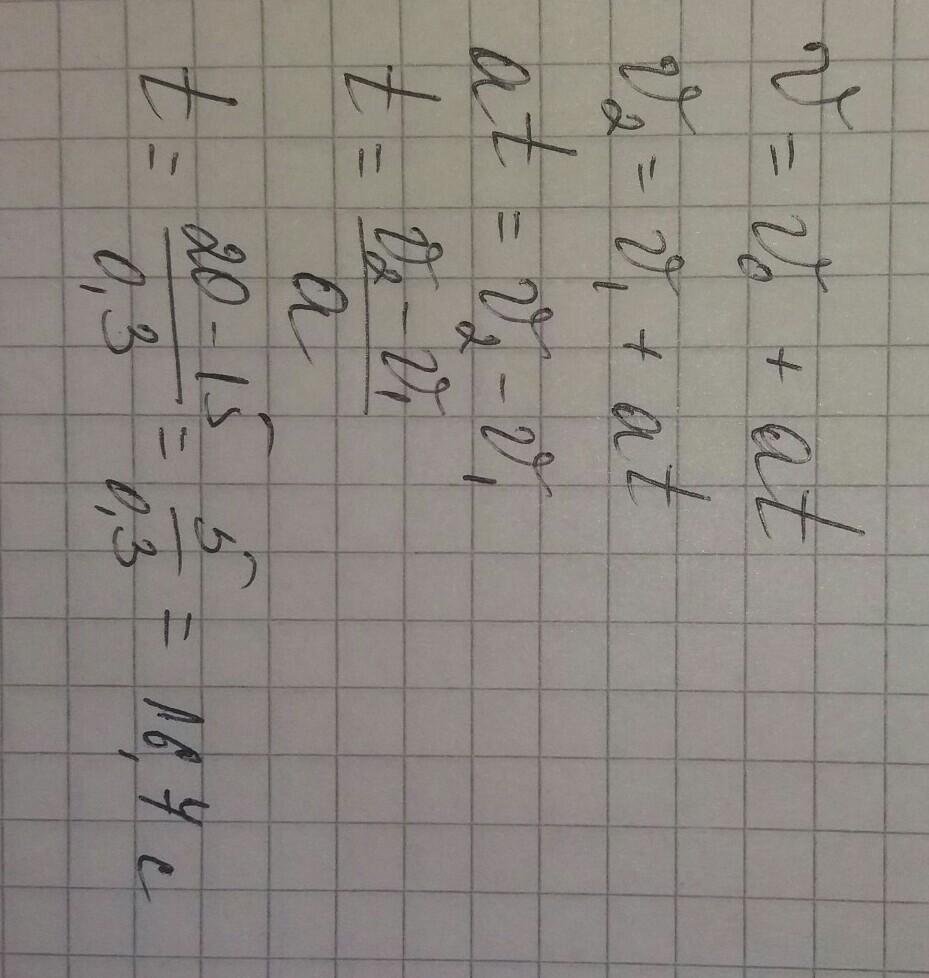 v = v₀ + at
v₂ = v₁ + at
at = v₂ - v₁
t = (v₂ - v₁)/a
t = (20 - 15)/0,3 = 5/0,3 = 16,7 c